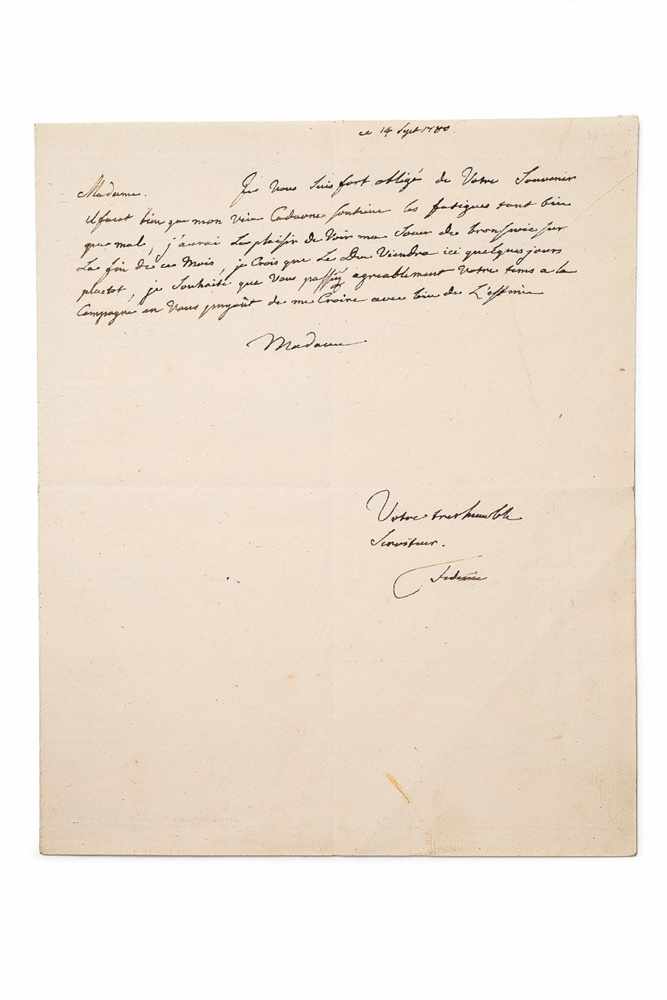 ce 14 Sept 1780.
Madame. Je Vous suis fort obligé de Votre Souvenir
il faut bien que mon vieu Cadavre soutiene les fatigues tant bien
que mal, j'aurai Le plaisir de Voir ma Soeur de bronsvic sur
La fin de ce Mois, je Crois que Le Duc Viendra ici quelques jours
plustot, je Souhaite que Vous passiez agreablement Votre tems a la
Campagne en Vous priant de me Croire avec bien de L'estime
Madame
Votre tres humble
Serviteur.
Federic